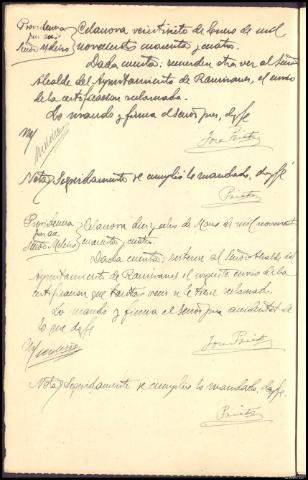 Providencia
juez sr.
Señor Meleiro
Celanova veintisiete de Enero de mil
novecientos cuarenta y cuatro.
Dada cuenta: recuerdese otra vez al Señor
Alcalde del Ayuntamiento de Ramiranes, el envio
de la certificacion reclamada.
Lo mandó y firma el Señor juez, doy fé
M/
Meleiro
José Prieto
Nota) Seguidamente se cumplió lo mandado, doy fé
Prieto
Providencia
juez
Señor Meleiro
Celanova diez y ocho de Marzo de mil novecientos
cuarenta y cuatro.
Dada cuenta: reiterese al Señor Alcalde del
Ayuntamiento de Ramiranes el urgente envio de la
certificacion que tantas veces se le tiene reclamado.
Lo mandó y firma el Señor juez accidental de
lo que doy fé
M/
José Prieto
Nota) Seguidamente se cumplió lo mandado, doy fé.
Prieto